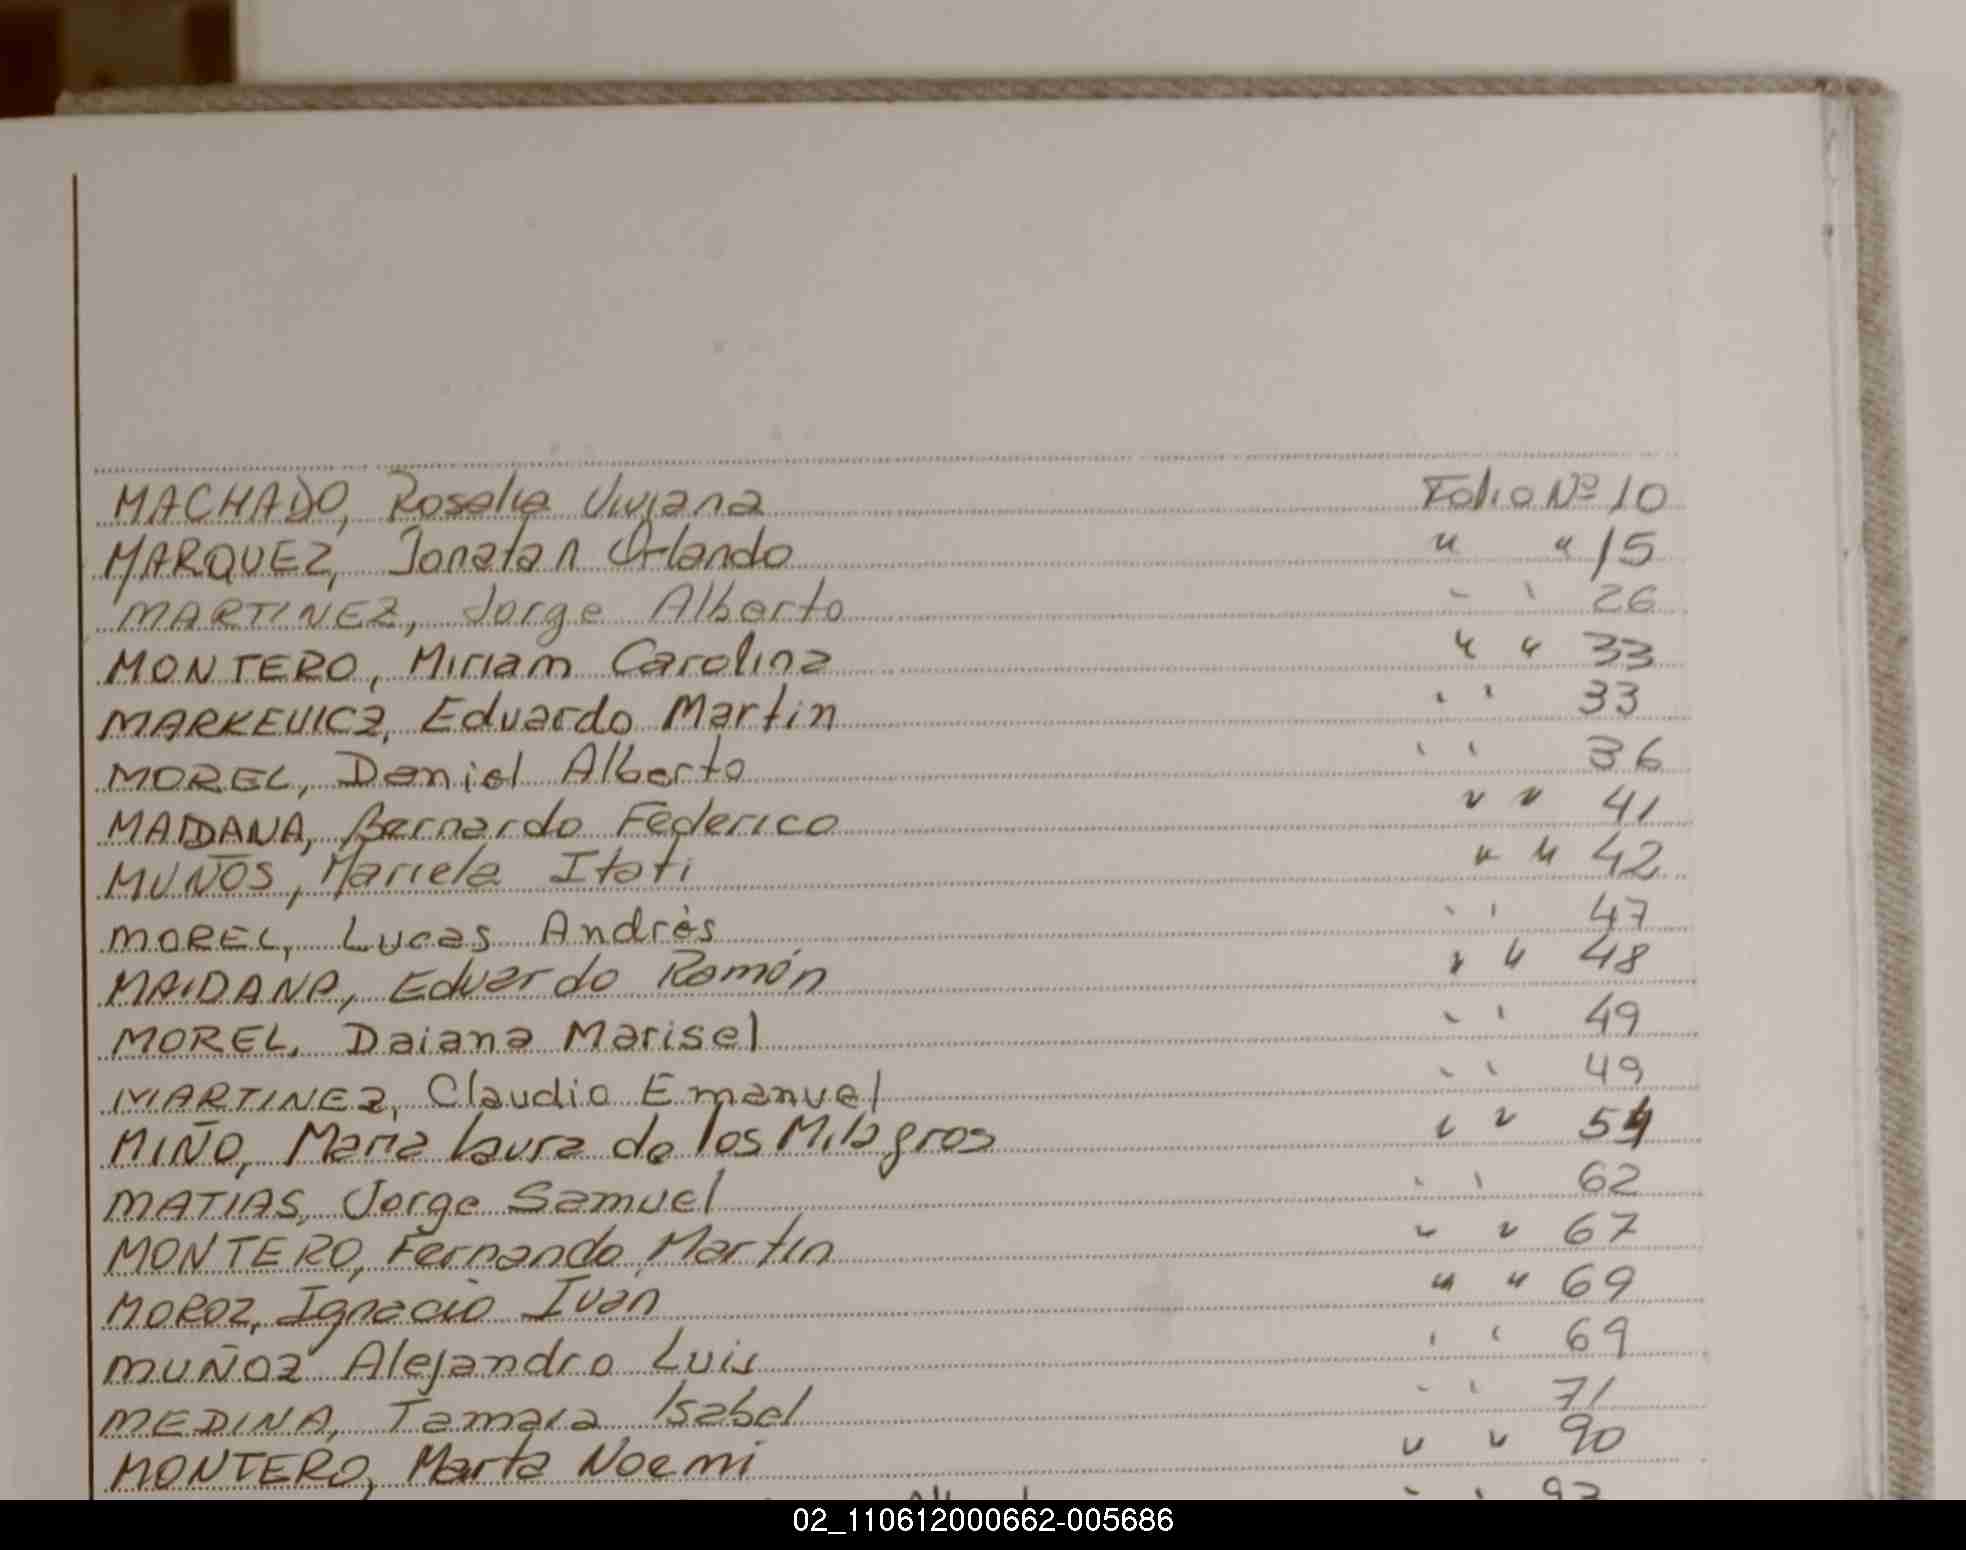 MACHADO, Rosalia Viviana Folio Nº 10
MARQUEZ, Jonatan Orlando " " 15
MARTINEZ, Jorge Alberto " " 26
MONTERO, Miriam Carolina " " 33
MARKEVICZ, Eduardo Martin " " 33
MOREL, Daniel Alberto " " 36
MAIDANA, Bernardo Federico " " 41
MUÑOS, Mariela Itati " " 42
MOREL, Lucas Andrès " " 47
MAIDANA, Eduardo Ramón " " 48
MOREL, Daiana Marisel " " 49
MARTINEZ, Claudio Emanuel " " 49
MIÑO, Maria Laura de los Milagros " " 54
MATIAS, Jorge Samuel " " 62
MONTERO, Fernando Martin " " 67
MOROZ, Ignacio Iván " " 69
MUÑOZ Alejandro Luis " " 69
MEDINA, Tamara Isabel " " 71
MONTERO, Marta Noemi " " 90
02_110612000662-005686